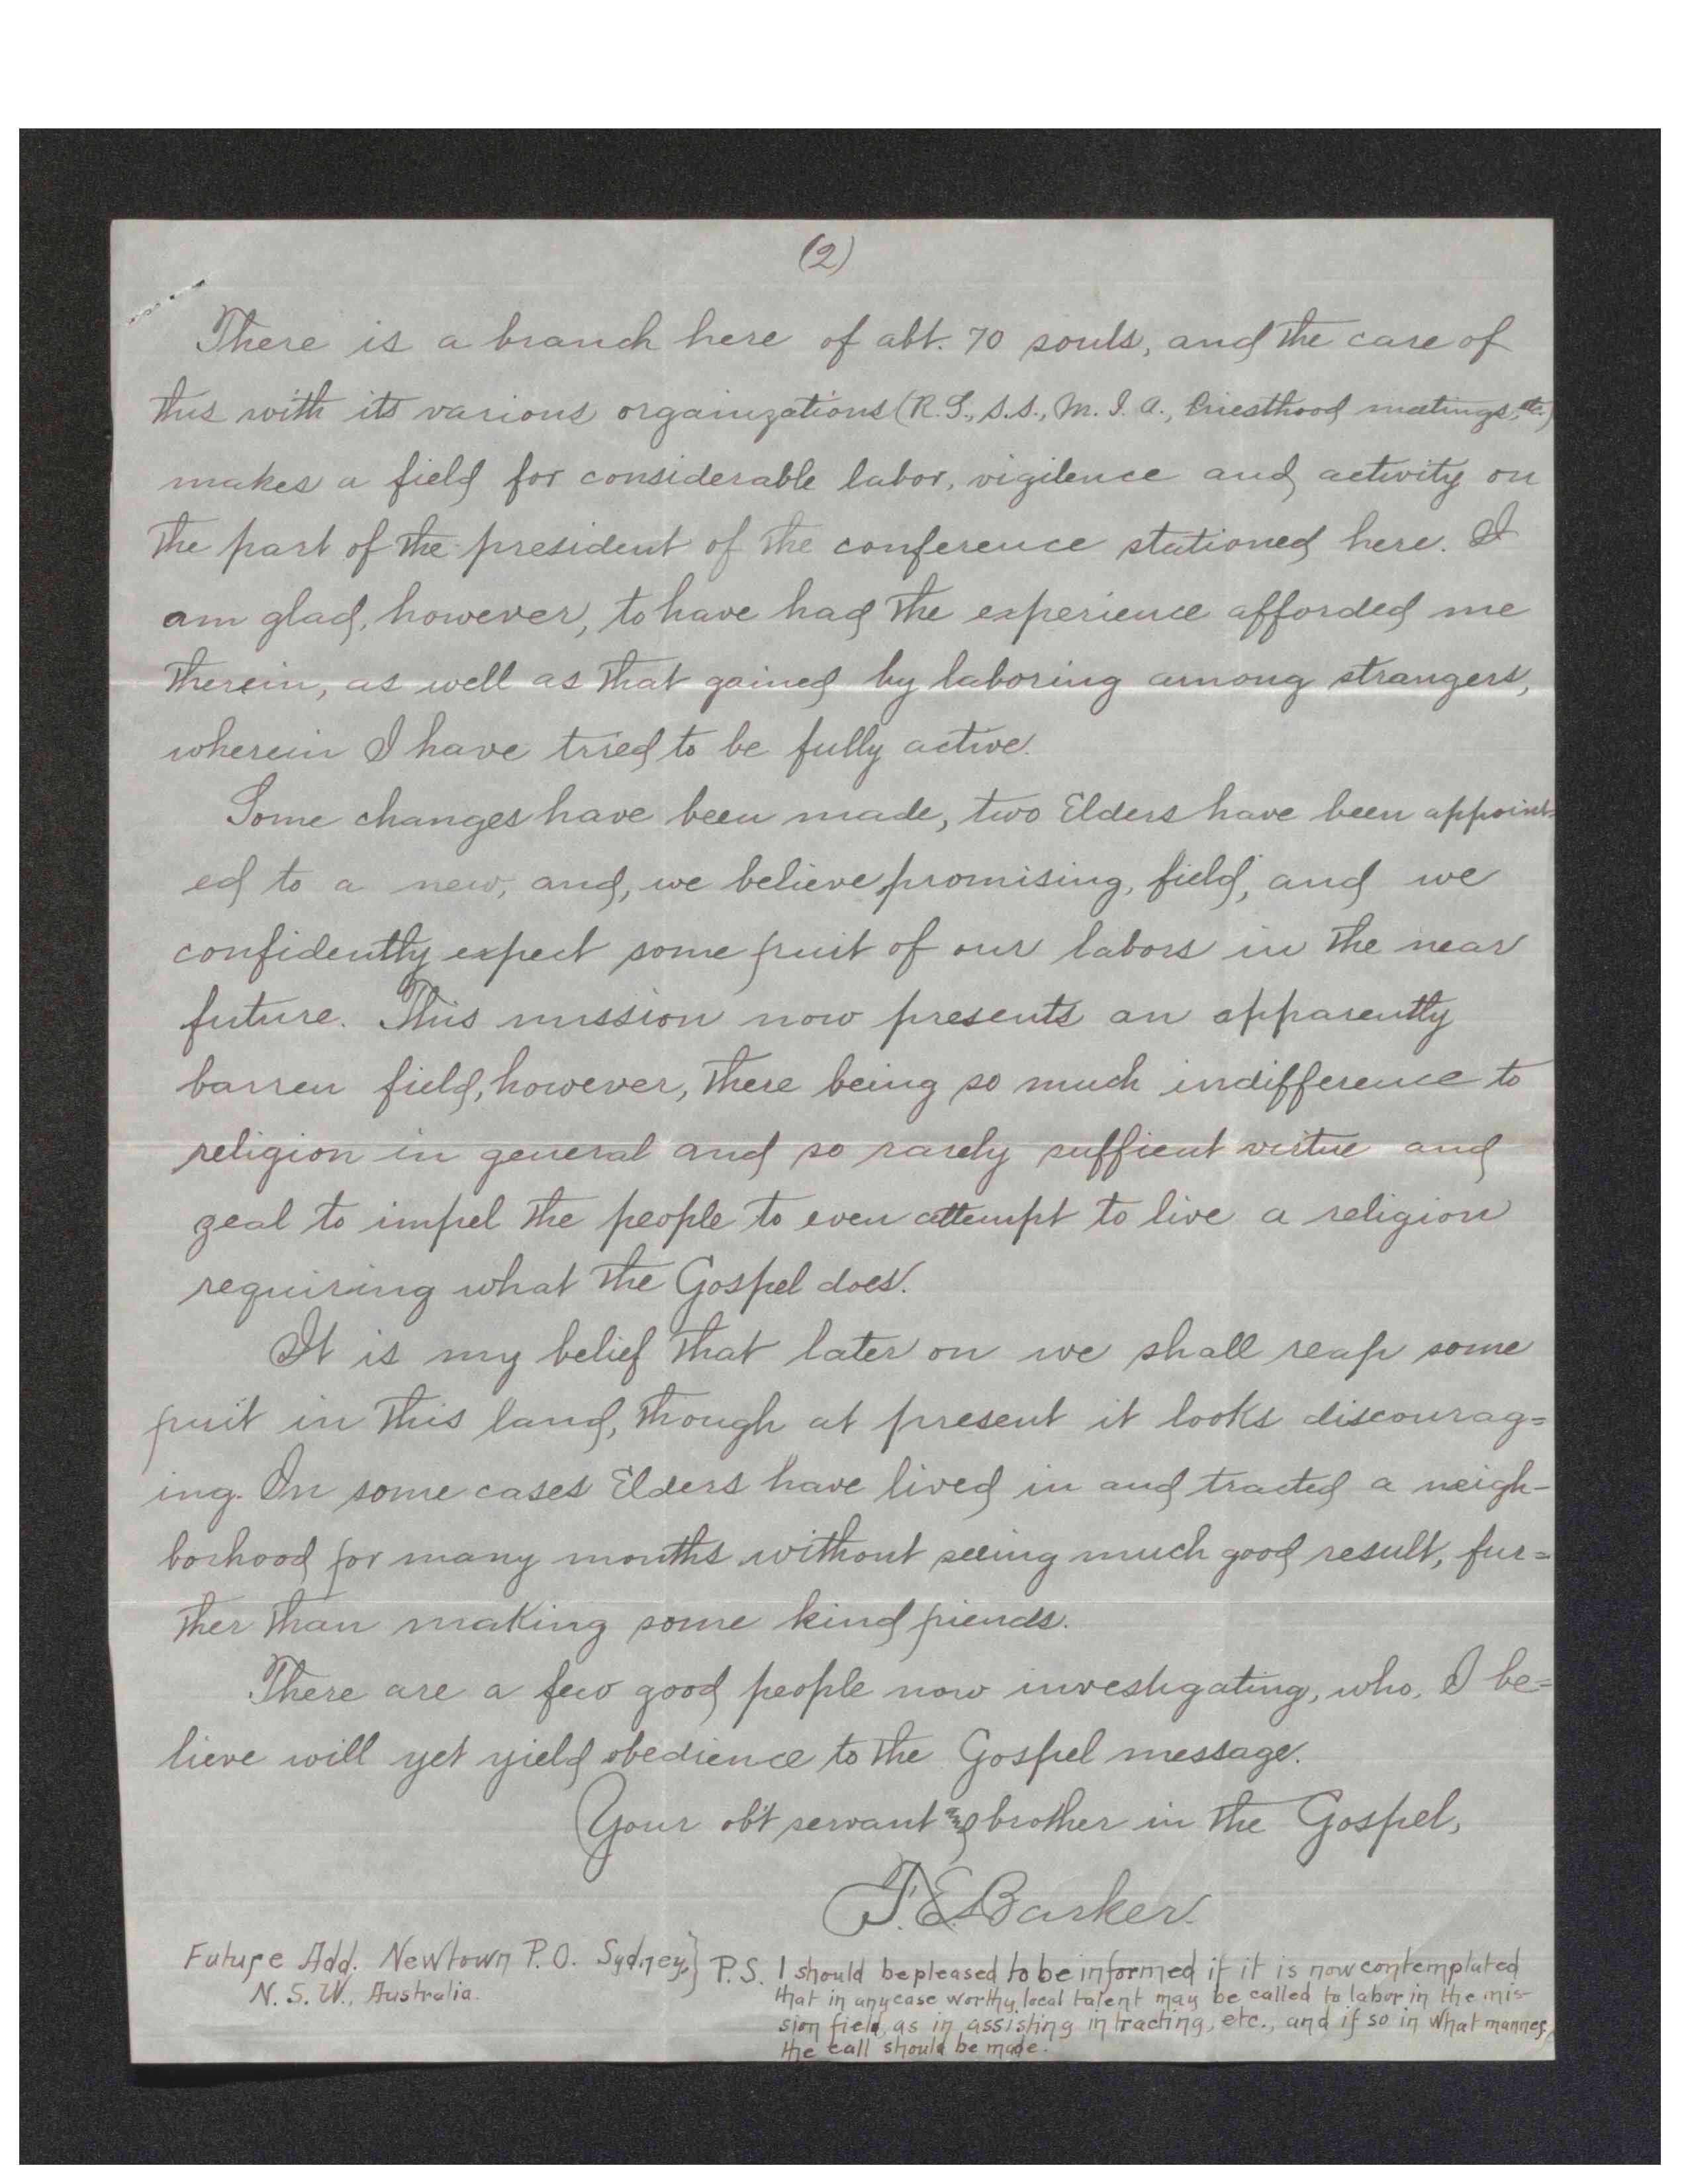 (2)
There is a branch here of abt. 70 souls, and the care of
this with its various orgainzations (R.S., S.S., M.I.A., Priesthood meetings, etc.)
makes a field for considerable labor, vigilence and activity on
the part of the president of the conference stationed here. I
am glad, however, to have had the experience afforded me
therein, as well as that gained by laboring among strangers,
wherein I have tried to be fully active.
Some changes have been made, two Elders have been appoint-
ed to a new, and, we believe promising, field, and we
confidently expect some fruit of our labors in the near
future. This mission now presents an apparently
barren field, however, there being so much indifference to
religion in general and so rarely suffient virtue and
zeal to impel the people to even attempt to live a religion
requiring what the Gospel does.
It is my belief that later on we shall reap some
fruit in this land, though at present it looks discourag=
ing. In some cases Elders have lived in and tracted a neigh-
borhood for many months without seeing much good result, fur=
ther than making some kind friends.
There are a few good people now investigating, who, I be=
lieve will yet yield obedience to the Gospel message.
Your ob't servant and brother in the Gospel,
T.E. Barker.
Future Add. Newtown P.O. Sydney,}
N.S.W., Australia.
P.S. I should be pleased to be informed if it is now contemplated
that in any case worthy local talent may be called to labor in the mis-
sion field, as in assisting in tracting, etc., and if so in what manner
the call should be made.